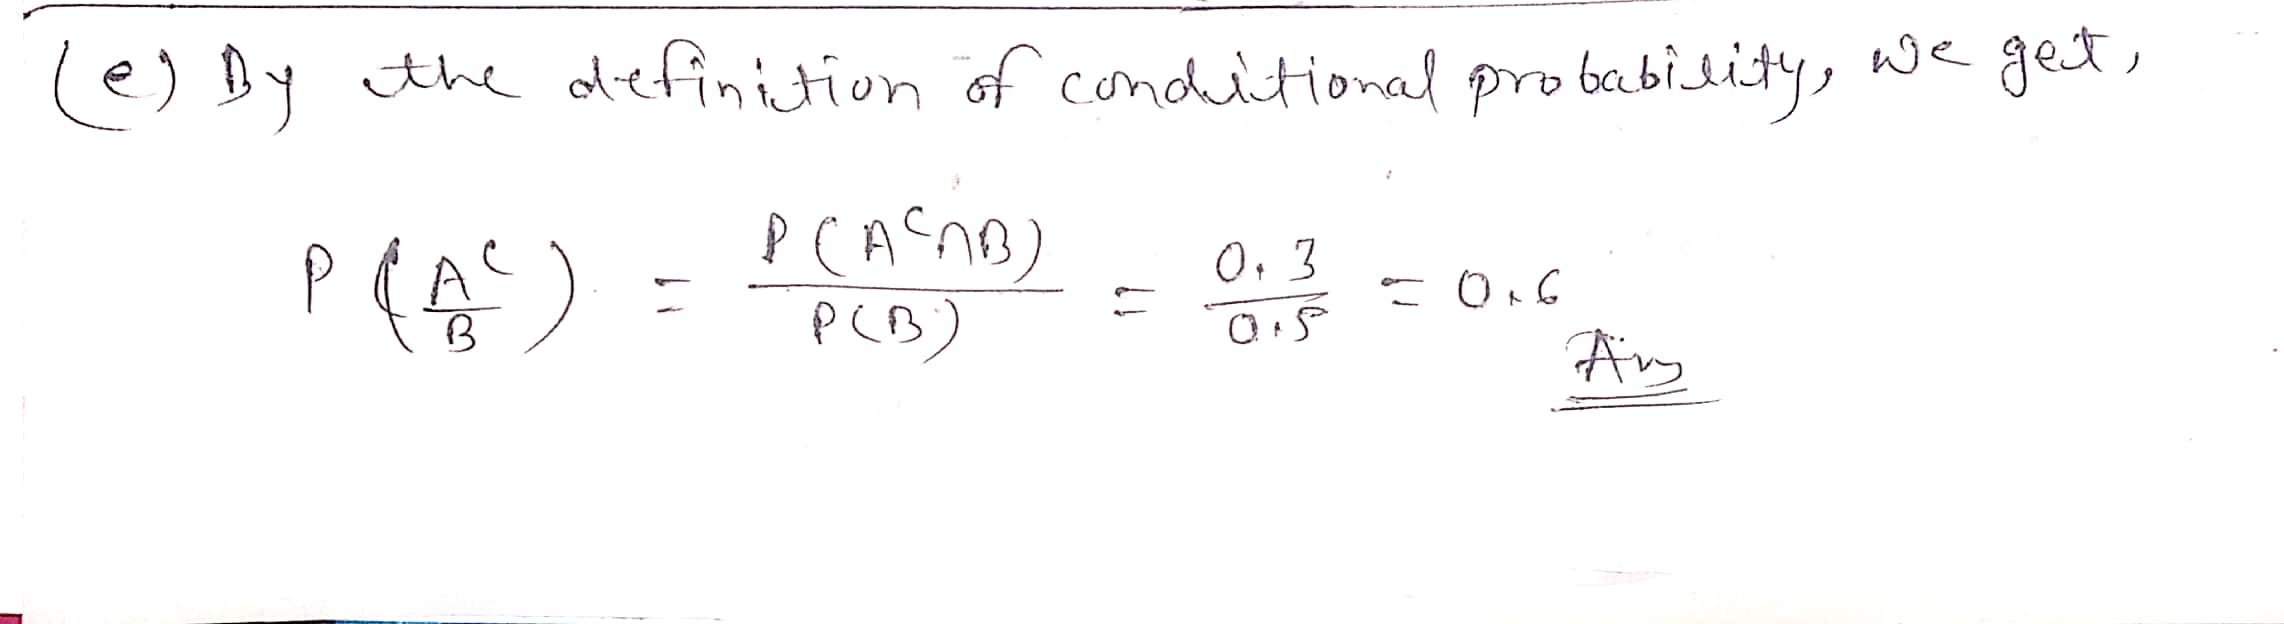 (e) By the definition of conditional probability, we get,
P(A^c/B) = P(A^c∩B)/P(B) = 0.3/0.5 = 0.6
Ans